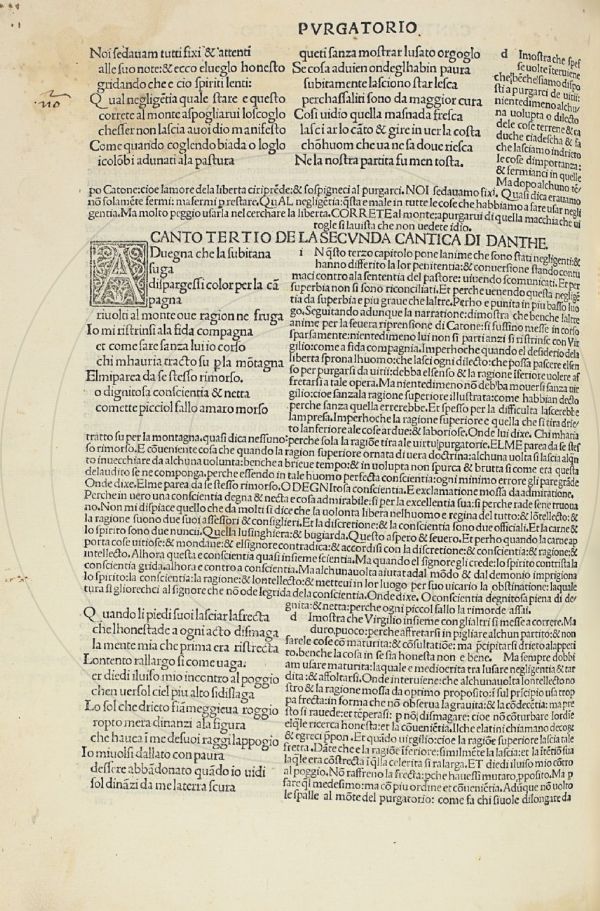 PVRGATORIO
Noi sedauam tutti fixi & attenti
alle suo note: & ecco el ueglo honesto
gridando che e cio spiriti lenti:
Qual negligẽtia quale stare e questo
correte al monte a spogliarui lo scoglo
chesser non lascia a uoi dio manifesto
Come quando coglendo biada o loglo
icolõbi adunati ala pastura
queti sanza mostrar lusato orgoglo
Se cosa aduien ondegl habin paura
subitamente lasciono star lesca
perchassaliti sono da maggior cura
Cosi uidio quella masnada fresca
lasciar lo cãto & gire in uer la costa
chõ huom che ua ne sa doue riesca
Ne la nostra partita fu men tosta.
d Imostra che spes
se uolte iteruiene
che benche siamo dispo
sti a purgarci de uitii:
nientedimeno alchu
na uolupta o dilecto
dele cose terrene & ca
duche ci adescha & fa
che lasciamo indrieto
le cose dimportanza:
& fermianci in quelle
Ma dopo alchuno tẽ
po Catone: cioe lamore dela liberta ci riprẽde: & sospigneci al purgarci. NOI sedauamo fixi. Quasi dica erauamo
nõ solamẽte fermi: ma fermi p restare. QuAL negligẽtia: q̃sta e male in tutte le cose che habbiamo a fare usar negli
gentia. Ma molto peggio usarla nel cerchare la liberta. CORRETE al monte: a purgarui di quella macchia che ui
togle si lauista che non uedete idio.
CANTO TERTIO DE LA SECVNDA CANTICA DI DANTHE.
A Duegna che la subitana
fuga
dispargessi color per la cã
pagna
riuolti al monte oue ragion ne fruga
Io mi ristrinsi ala fida compagna
et come sare sanza lui io corso
chi mhauria tracto su p la mõtagna
El mi parea da se stesso rimorso.
o dignitosa conscientia & netta
come tte picciol fallo amaro morso
i N q̃sto terzo capitolo pone lanime che sono stati negligenti: &
hanno differito la lor penitentia: & conuersione stando contu
maci contro ala sententia del pastore: uiuendo scomunicati. Et per
superbia non si sono riconciliati. Et perche uenendo questa neglige
tia da superbia e piu graue che laltre. Perho e punita in piu basso luo
go. Seguitando adunque la narratione: dimostra che benche laltre
anime per la seuera riprensione di Catone: si fussino messe in corso
sparsamente: nientedimeno lui non si parti anzi si ristrinse con Vir
gilio: come a fida compagnia. Imperhoche quando el desiderio dela
liberta sprona lhuomo: che lasci ogni dilecto: che possa passere elsen
so per purgarsi da uitii: debba elsenso & la ragione iferiore uolere af
fretarsi a tale opera. Ma nientedimeno nõ deb ba mouersi sanza uir
gilio: cioe sanza la ragione superiore illustrata: come habbian decto
perche sanza quella errerebbe. Et spesso per la difficulta lascerebbe
lampresa. Imperhoche la ragione superiore e quella che si tira drie
to lanferiore ale cose ardue: & laboriose. Onde lui dixe. Chi mharia
tratto su per la montagna. quasi dica nessuno: perche sola la ragiõe tira ale uirtu purgatorie. EL ME parea da se stes
so rimorso. E conueniente cosa che quando la ragion superiore ornata di uera doctrina: alchuna uolta si lascia alqn
to inuecchiare da alchuna uolonta: benche a brieue tempo: & in uolupta non spurca & brutta si come era questa
del audito se ne componga. perche essendo in tale huomo perfecta conscientia: ogni minimo errore gli pare grãde
Onde dixe. El me parea da se stesso rimorso. O DEGNITosa conscientia. E exclamatione mossa da admiratione.
Perche in uero una conscientia degna & necta e cosa admirabile: si per la excellentia sua: si perche rade se ne truoua
no. Non mi dispiace quello che da molti si dice che la uolonta libera nelhuomo e regina del tutto: & lo intellecto: &
la ragione suono due suoi assessori & consiglieri. Et la discretione: & la conscientia sono due officiali. Et la carne &
lo spirito sono due nuncii. Quella lusinghiera: & bugiarda. Questo aspero & seuero. Et perho quando la carne ap
porta cose uitiose: & mondane: & el signore contradica: & accordisi con la discretione: & conscientia: & ragione: &
intellecto. Alhora questa e conscientia quasi insieme scientia. Ma quando el signore gli crede: lo spirito contrista la
conscientia grida. alhora e contro a conscientia. Ma alchuna uolta aiutat adal mõdo & dal demonio imprigiona
lo spirito: la conscientia: la ragione: & lo intellecto: & metteui in luor luogo per suo uicario la obstinatione: la quale
tura si gli orecchi al signore che nõ ode le grida dela conscientia. Onde dixe. O conscientia degnitosa piena di de
gnita: & netta: perche ogni piccol fallo la rimorde assai.
Quando li piedi suoi lasciar la frecta
che lhonestade a ogni acto dismaga
la mente mia che prima era ristrecta
Lontento rallargo si come uaga:
et diedi iluiso mio incontro al poggio
chen uer sol ciel piu alto si dislaga
Lo sol che drieto fiãmeggieua roggio
ropto mera dinanzi ala figura
che haueа ĩ me de suoi raggi lappogio
Io mi uolsi dallato con paura
dessere abbãdonato quãdo io uidi
sol dinãzi da me la terra scura
d Imostra che Virgilio insieme con gli altri si messe a correre. Ma
duro, puoco: perche affretarsi in pigliare alchun partito: & non
farele cose cõ maturita: & cõsultatiõe: ma p̃cipitarsi drieto al appeti
to. benche la cosa in se sia honesta non e bene. Ma sempre dobbi
am usare maturita: la quale e mediocrita tra lusare negligentia & tar
dita: & affoltarsi. Onde interuiene: che alchuna uolta lontellecto no
stro & la ragione mossa da optimo proposito: si sul pricipio usa trop
pa frecta: in forma che nõ obserua la grauita: & la cõdecẽtia: ma pre
sto si rauede: et tẽperasi: p nõ dismagare: cioe nõ cõturbare lordine
elq̃le ricerca honesta: et la cõueniẽtia. Ilche e latini chiamano decoro
& egreci prepon. Et quãdo uirgilio: cioe la ragione superiore lascia tale
fretta. Dãte che e la ragiõe iferiore: similmẽte la lascia: et la itẽtiõ sua
la q̃le era cõstrecta i q̃lla celerita si ralarga. ET diedi iluiso mio cõtro
al poggio. Nõ raffreno la frecta: p̃che hauessi mutato p̱posito. Ma p
fare q̃l medesimo: ma cõ piu ordine et cõueniẽtia. Adũque nõ uolto
le spalle al mõte del purgatorio: come fa chi suole dilongarsi da